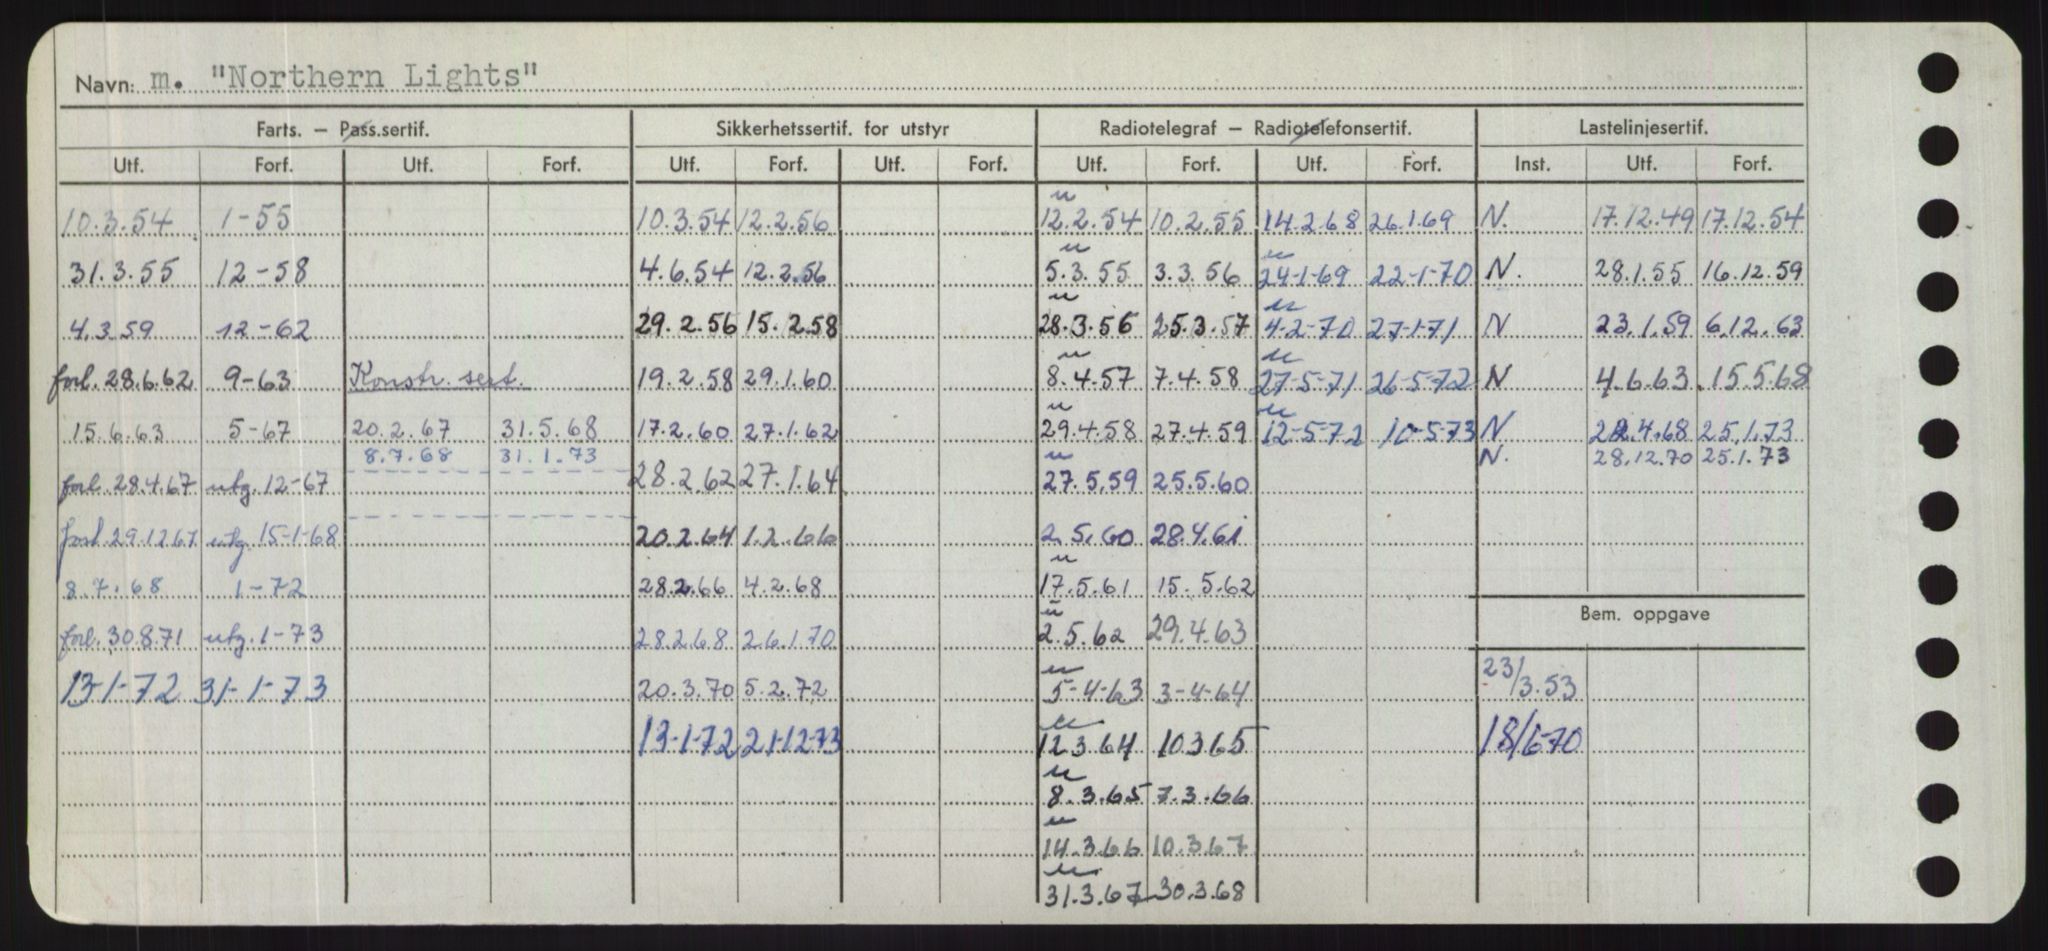 Navn: m. "Northern Lights"
Farts. – Pass.sertif. Sikkerhetssertif. for utstyr Radiotelegraf – Radiotelefonsertif. Lastelinjesertif.
Utf. Forf. Utf. Forf. Utf. Forf. Utf. Forf. Utf. Forf. Utf. Forf. Inst. Utf. Forf.
10.3.54 1-55 10.3.54 12.2.56 12.2.54 10.2.55 14.2.68 26.1.69 N. 17.12.49 17.12.54
31.3.55 12-58 4.6.54 12.2.56 5.3.55 3.3.56 24-1-69 22-1-70 N. 28.1.55 16.12.59
4.3.59 12-62 29.2.56 15.2.58 28.3.56 25.3.57 4-2-70 27-1-71 N 23.1.59 6.12.63
forl. 28.6.62 9-63 Konstr. sert. 19.2.58 29.1.60 8.4.57 7.4.58 27-5-71 26-5-72 N 4.6.63 15.5.68
15.6.63 5-67 20.2.67 31.5.68 17.2.60 27.1.62 29.4.58 27.4.59 12-5-72 10-5-73 N 22.4.68 25.1.73
8.7.68 31.1.73 N. 28.12.70 25.1.73
forl. 28.4.67 utg. 12-67 28.2.62 27.1.64 27.5.59 25.5.60
forl. 29.12.67 utg. 15-1-68 20.2.64 1.2.66 2.5.60 28.4.61
8.7.68 1-72 28.2.66 4.2.68 17.5.61 15.5.62
Bem. oppgave
forl. 30.8.71 utg. 1-73 28.2.68 26.1.70 2.5.62 29.4.63
13-1-72 31-1-73 20.3.70 5.2.72 5-4-63 3-4-64 23/3.53
13-1-72 21-12-73 12.3.64 10.3.65 18/6-70
8.3.65 7.3.66
14.3.66 10.3.67
31.3.67 30.3.68